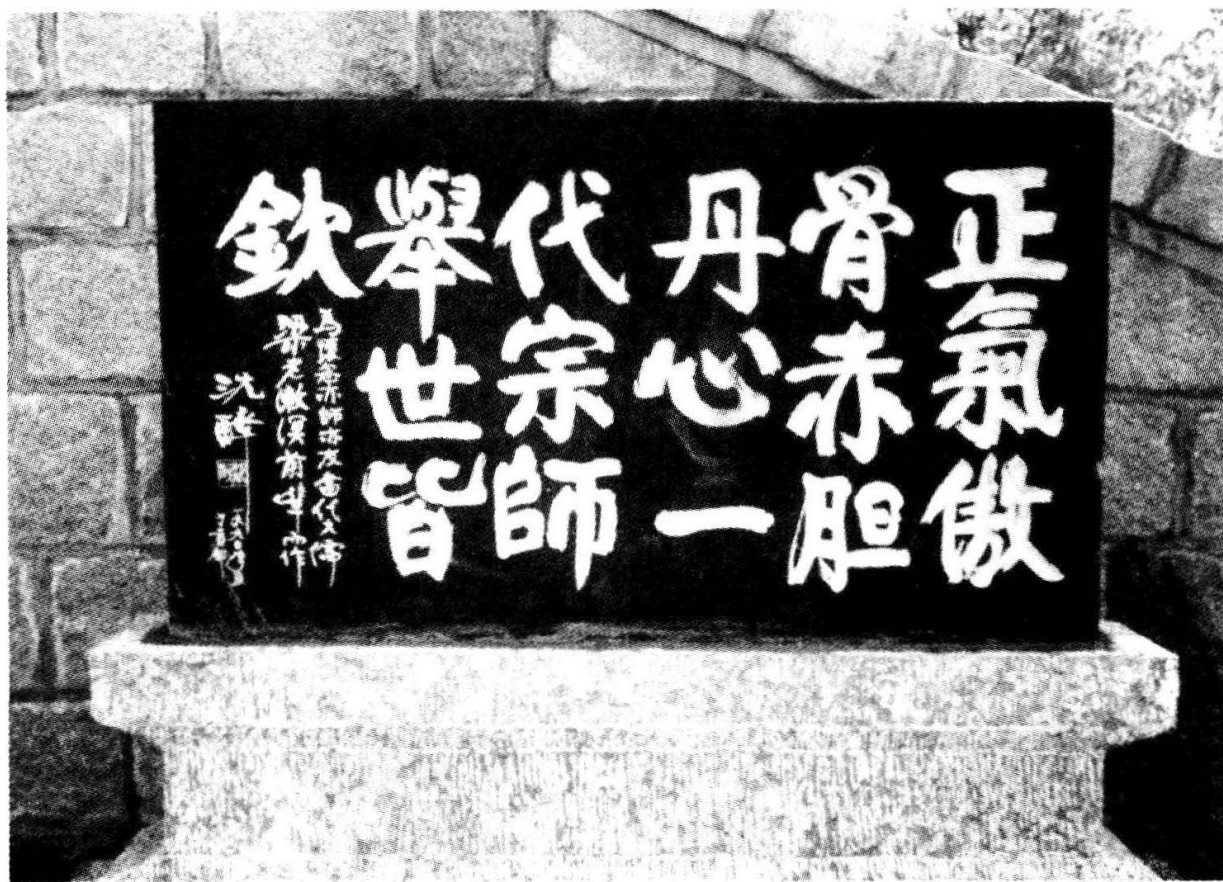 正氣傲
骨赤胆
丹心一
代宗師
舉世皆
欽
梁老漱溟前輩而作
沈醉